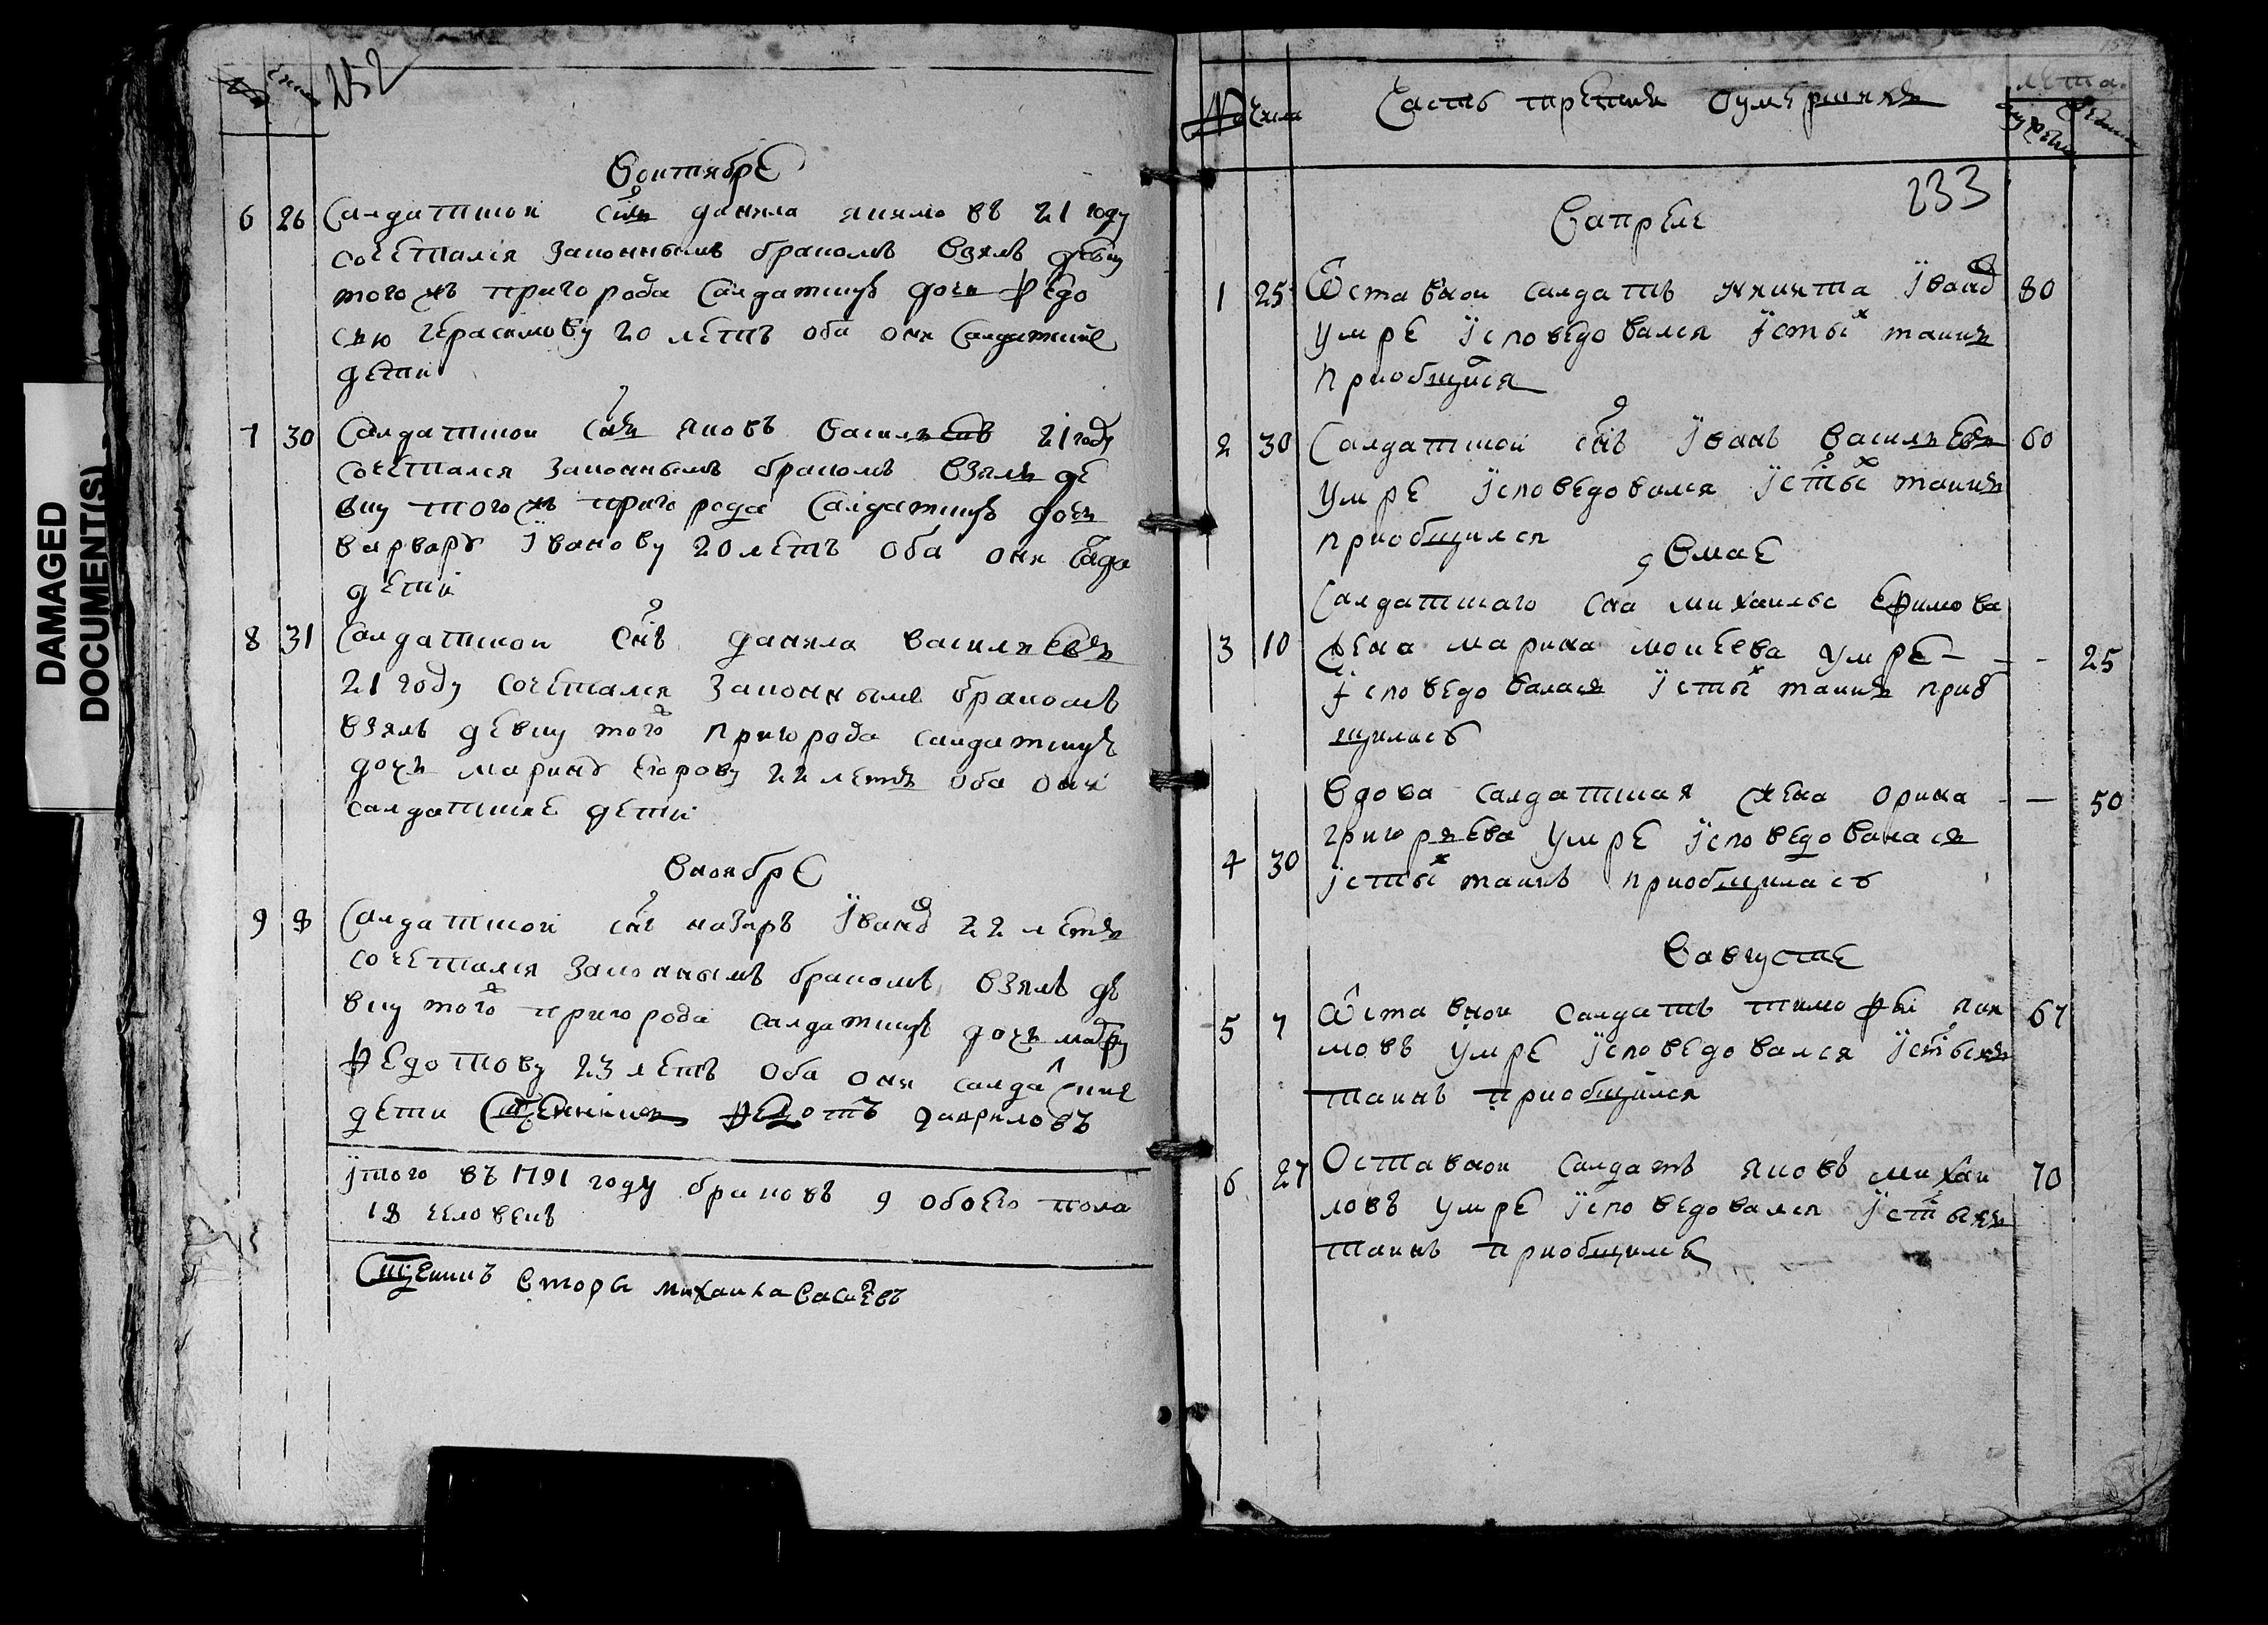 DAMAGED
DOCUMENT(S)
№ числа 232
Воктябрѣ
6 26 Салдатской снъ данила якимовъ 21 году
сочетался законнымъ бракомъ взялъ девку
того жъ пригорода Салдатскую дочь Федо
сью герасимову 20 летъ оба они Салдатские
дети
7 30 Салдатской снъ яковъ Васильевъ 21 году
сочетался законнымъ бракомъ взялъ де
вку того жъ пригорода Салдатскую дочь
варвару Иванову 20 летъ оба они Салда
дети
8 31 Салдатской снъ данила василиевъ
21 году сочетался законнымъ бракомъ
взялъ девку того пригорода салдатскую
дочь марину Егорову 22 летъ оба они
салдатские дети
Вноябрѣ
9 8 Салдатской снъ назаръ Ивановъ 22 летъ
сочетался законнымъ бракомъ взялъ де
вку того пригорода салдатскую дочь
Федотову 23 летъ оба они салдатские
дети Сщенникъ Федотъ гавриловъ
Итого въ 1791 году браковъ 9 обоего пола
18 человекъ
Сщенникъ Михаила Васильевъ
№ числа Часть третия Оумершихъ лета
мужеска женска
233
Вапреле
1 25 Ѿставной салдатъ никита Ивановъ 80
умре Исповедовался Истыхъ таинъ
приобщился
2 30 Салдатской снъ Иванъ Василиевъ 60
умре Исповедовался Истыхъ таинъ
приобщился
Вмае
Салдатскаго сна михаила Ефимова
3 10 жена марина моисеева умре - - - 25
Исповедовалася Истыхъ таинъ приоб
щилась
Вдова салдатская жена орина - — 50
григориева умре Исповедовалася
4 30 Истыхъ таинъ приобщилась
Вавгусте
5 7 Ѿставной салдатъ тимофей яки 67
мовъ умре Исповедовался Истыхъ
таинъ приобщился
6 27 Оставной салдатъ яковъ михаи 70
ловъ умре Исповедовался Истыхъ
таинъ приобщился